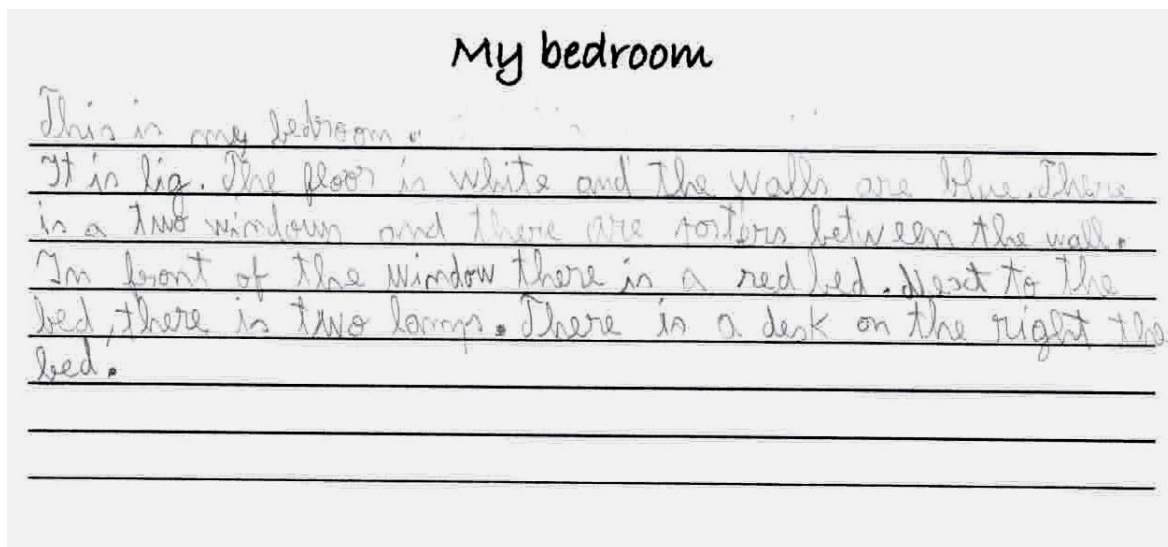 My bedroom
This is my bedroom.
It is big. The floor is white and the walls are blue. There
is a two windows and there are posters between the wall.
In front of the window there is a red bed. Next to the
bed, there is two lamps. There is a desk on the right the
bed.